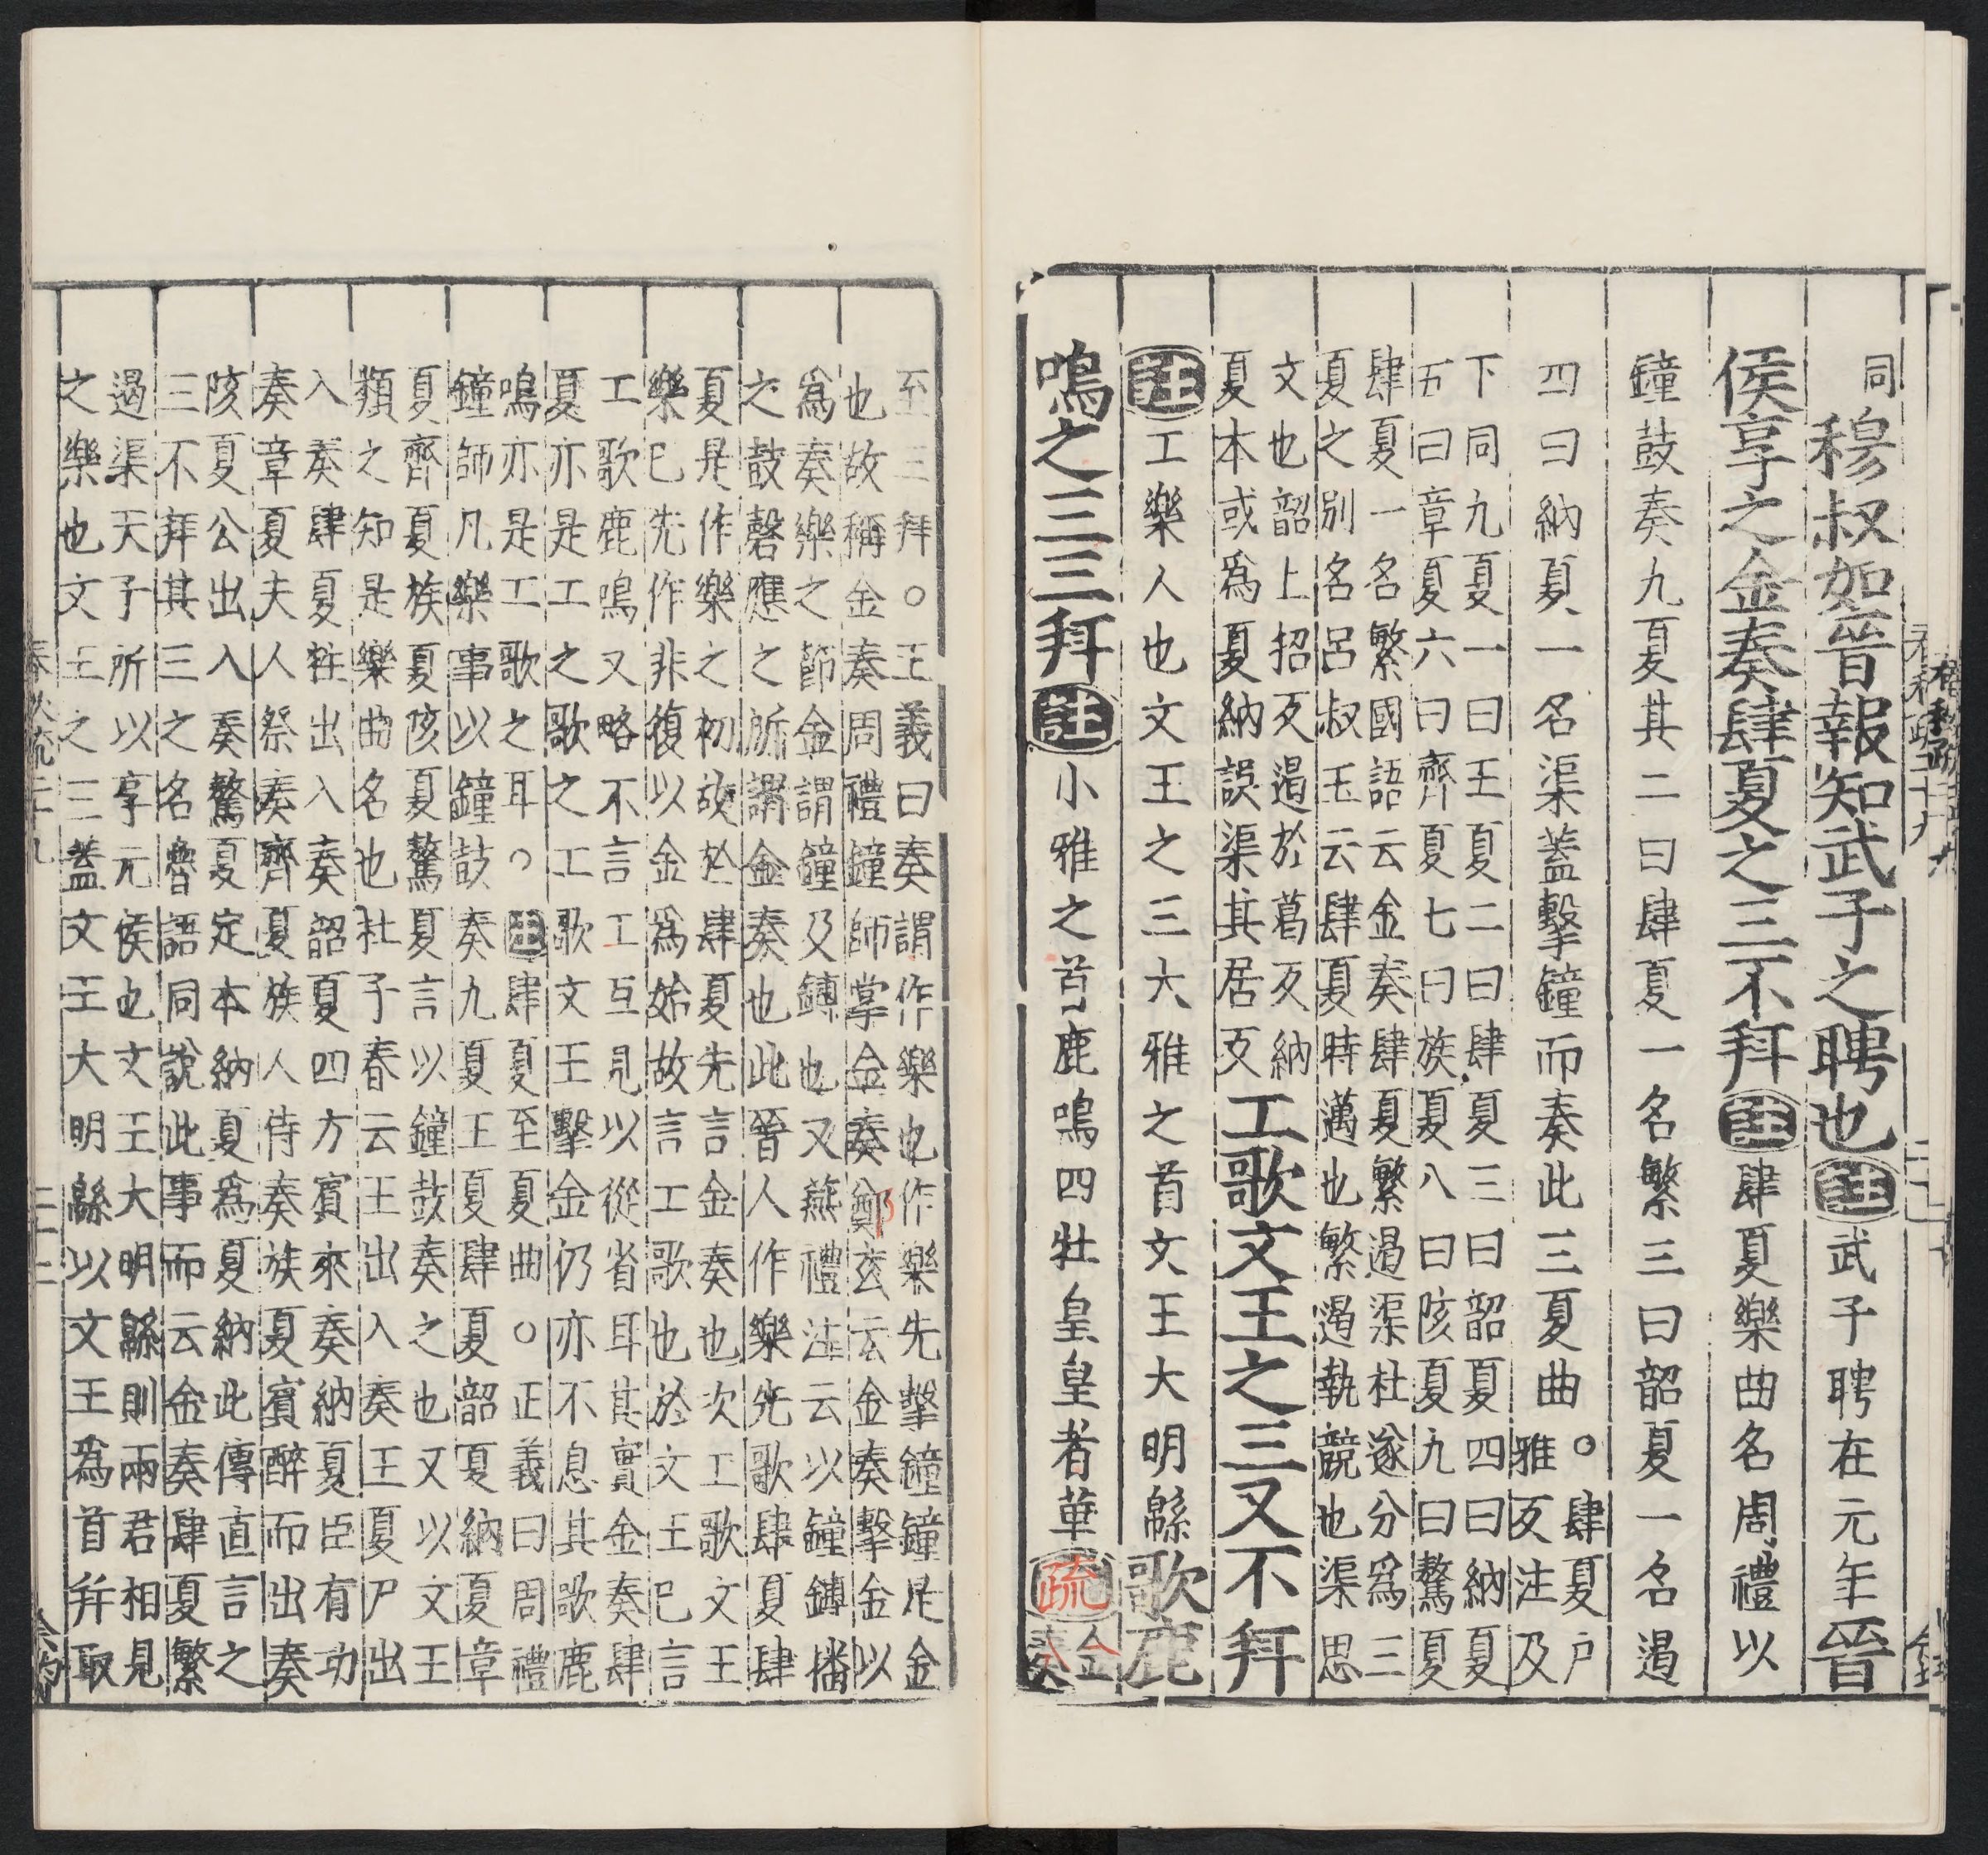 同穆叔如晉報知武子之聘也註武子聘在元年晉
侯享之金奏肆夏之三不拜註肆夏樂曲名周禮以
鐘鼓奏九夏其二曰肆夏一名繁三曰韶夏一名遏
四曰納夏一名渠蓋擊鐘而奏此三夏曲○肆夏戶
雅反注及
下同九夏一曰王夏二曰肆夏三曰韶夏四曰納夏
五曰章夏六曰齊夏七曰族夏八曰陔夏九曰驁夏
肆夏一名繁國語云金奏肆夏繁遏渠杜遂分爲三
夏之別名呂叔玉云肆夏時邁也繁遏執競也渠思
文也韶上招反遏於葛反納
夏本或爲夏納誤渠其居反工歌文王之三又不拜
註工樂人也文王之三大雅之首文王大明緜歌鹿
鳴之三三拜註小雅之首鹿鳴四牡皇皇者華疏金
奏
至三拜○正義曰奏謂作樂也作樂先擊鐘鐘是金
也故稱金奏周禮鐘師掌金奏鄭玄云金奏擊金以
爲奏樂之節金謂鐘及鏄也又燕禮注云以鐘鏄播
之鼓磬應之所謂金奏也此晉人作樂先歌肆夏肆
夏是作樂之初故於肆夏先言金奏也次工歌文王
樂已先作非復以金爲始故言工歌也於文王已言
工歌鹿鳴又略不言工互見以從省耳其實金奏肆
夏亦是工之歌之工歌文王擊金仍亦不息其歌鹿
鳴亦是工歌之耳○註肆夏至夏曲○正義曰周禮
鐘師凡樂事以鐘鼓奏九夏王夏肆夏韶夏納夏章
夏齊夏族夏陔夏驁夏言以鐘鼓奏之也又以文王
類之知是樂曲名也杜子春云王出入奏王夏尸出
入奏肆夏牲出入奏韶夏四方賓來奏納夏臣有功
奏章夏夫人祭奏齊夏族人侍奏族夏賓醉而出奏
陔夏公出入奏驁夏定本納夏爲夏納此傳直言之
三不拜其三之名魯語同說此事而云金奏肆夏繁
遏渠天子所以享元侯也文王大明緜則兩君相見
之樂也文王之三蓋文王大明緜以文王爲首并取
春秋疏二十九